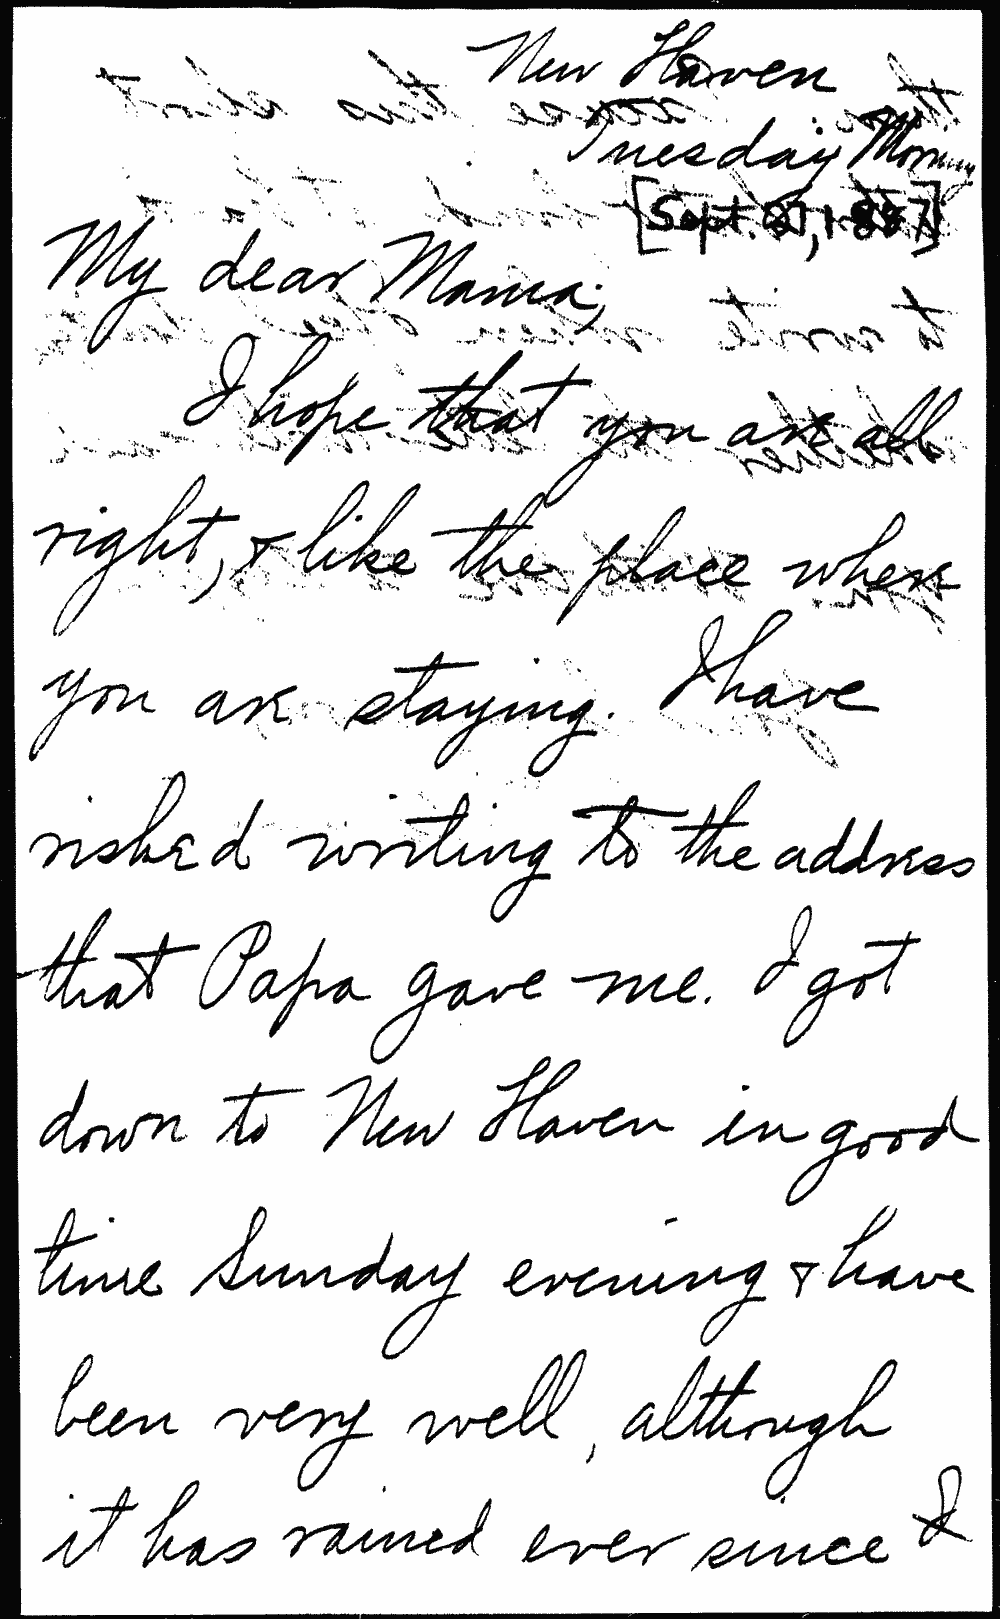 New Haven
Tuesday Morning
[Sept. 27, 1887]
My dear Mama;
I hope that you are all
right, & like the place where
you are staying. I have
risked writing to the address
that Papa gave me. I got
down to New Haven in good
time Sunday evening & have
been very well, although
it has rained ever since I